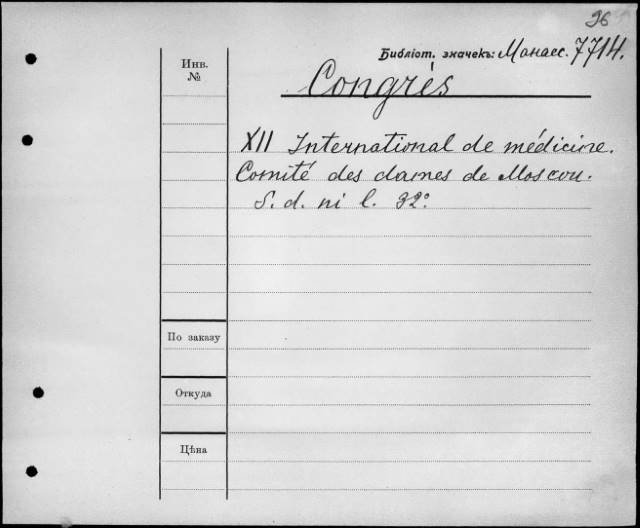 96
Библіот. значекъ: Манасс. 7714.
Инв.
№
Congrès
XII International de médicine.
Comité des dames de Moscou.
S. d. ni l. 32°.
По заказу
Откуда
Цѣна